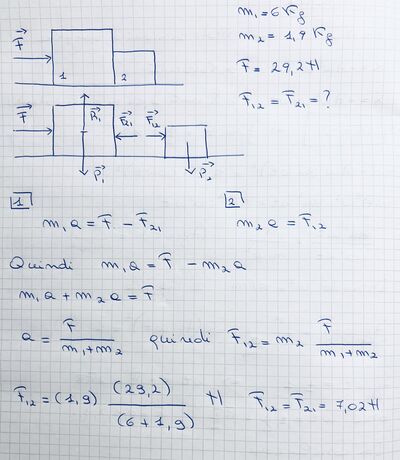 m₁ = 6 Kg
m₂ = 1,9 Kg
F⃗
1
2
F = 29,2 N
F₁₂ = F₂₁ = ?
F⃗
R⃗₁
F⃗₂₁
F⃗₁₂
P⃗₁
P⃗₂
1
2
m₁ a = F − F₂₁
m₂ a = F₁₂
Quindi m₁ a = F − m₂ a
m₁ a + m₂ a = F
a = F / (m₁ + m₂) quindi F₁₂ = m₂ F / (m₁ + m₂)
F₁₂ = (1,9) (29,2) / (6 + 1,9) N F₁₂ = F₂₁ = 7,02 N